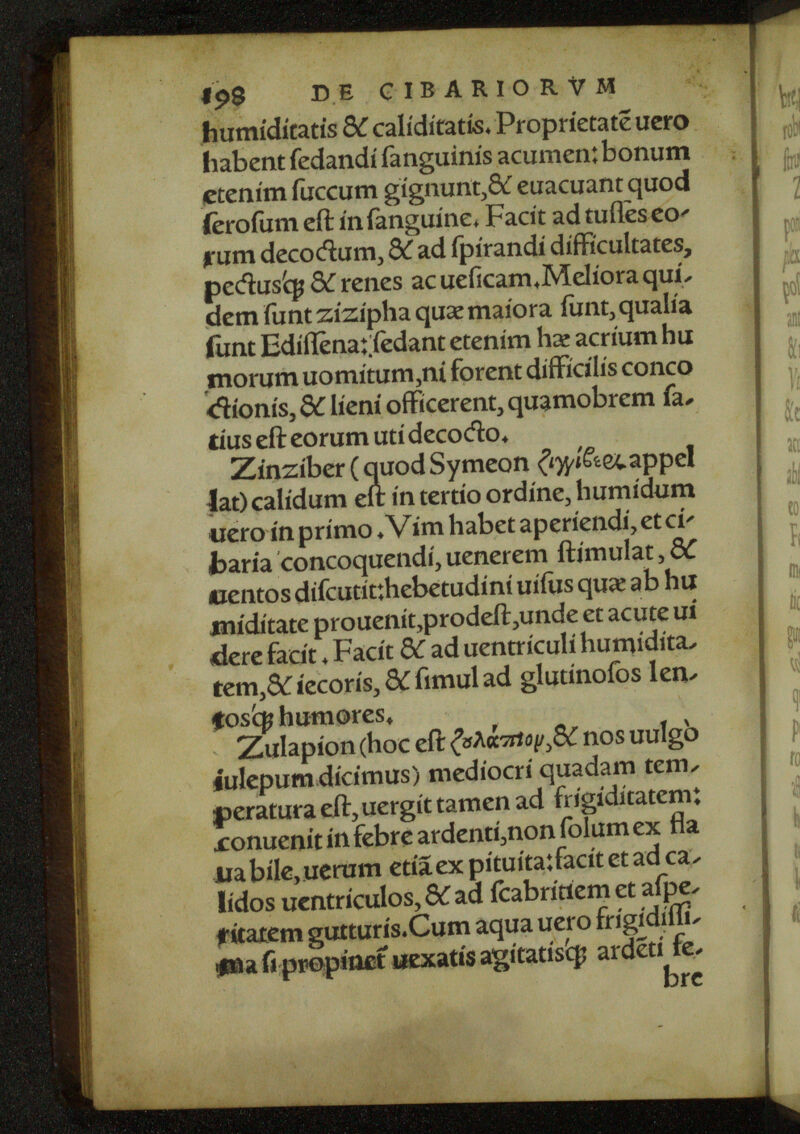 198 DE CIBARIORVM
humiditatis & caliditatis. Proprietatē uero
habent ſedandi ſanguinis acumen: bonum
etenim ſuccum gignunt,& euacuant quod
ſeroſum eſt in ſanguine. Facit ad tuſſes eo-
rum decoctum, & ad ſpirandi difficultates,
pectusꝗ & renes ac ueſicam.Meliora qui-
dem ſunt zizipha quæ maiora ſunt, qualia
ſunt Ediſſena: ſedant etenim hæ acrium hu
morum uomitum,ni forent difficilis conco
ctionis, & lieni officerent, quamobrem ſa-
tius eſt eorum uti decocto.
Zinziber (quod Symeon appel
lat) calidum eſt in tertio ordine, humidum
uero in primo. Vim habet aperiendi, et ci-
baria concoquendi, uenerem ſtimulat, &
uentos diſcutit: hebetudini uiſus quæ ab hu
miditate prouenit,prodeſt,unde et acute ui
dere facit. Facit & ad uentriculi humidita-
tem,& iecoris, & ſimul ad glutinoſos len-
tosꝗ humores.
Zulapion (hoc eſt ζουλάπιον,& nos uulgo
iulepum dicimus) mediocri quadam tem-
peratura eſt, uergit tamen ad frigiditatem:
conuenit in febre ardenti,non ſolum ex fla
ua bile, uerum etiā ex pituita: facit et ad ca-
lidos uentriculos, & ad ſcabritiem et aſpe-
ritatem gutturis.Cum aqua uero frigidiſſi-
ma ſi propinet̄ uexatis agitatisꝗ ardēti fe-
bre